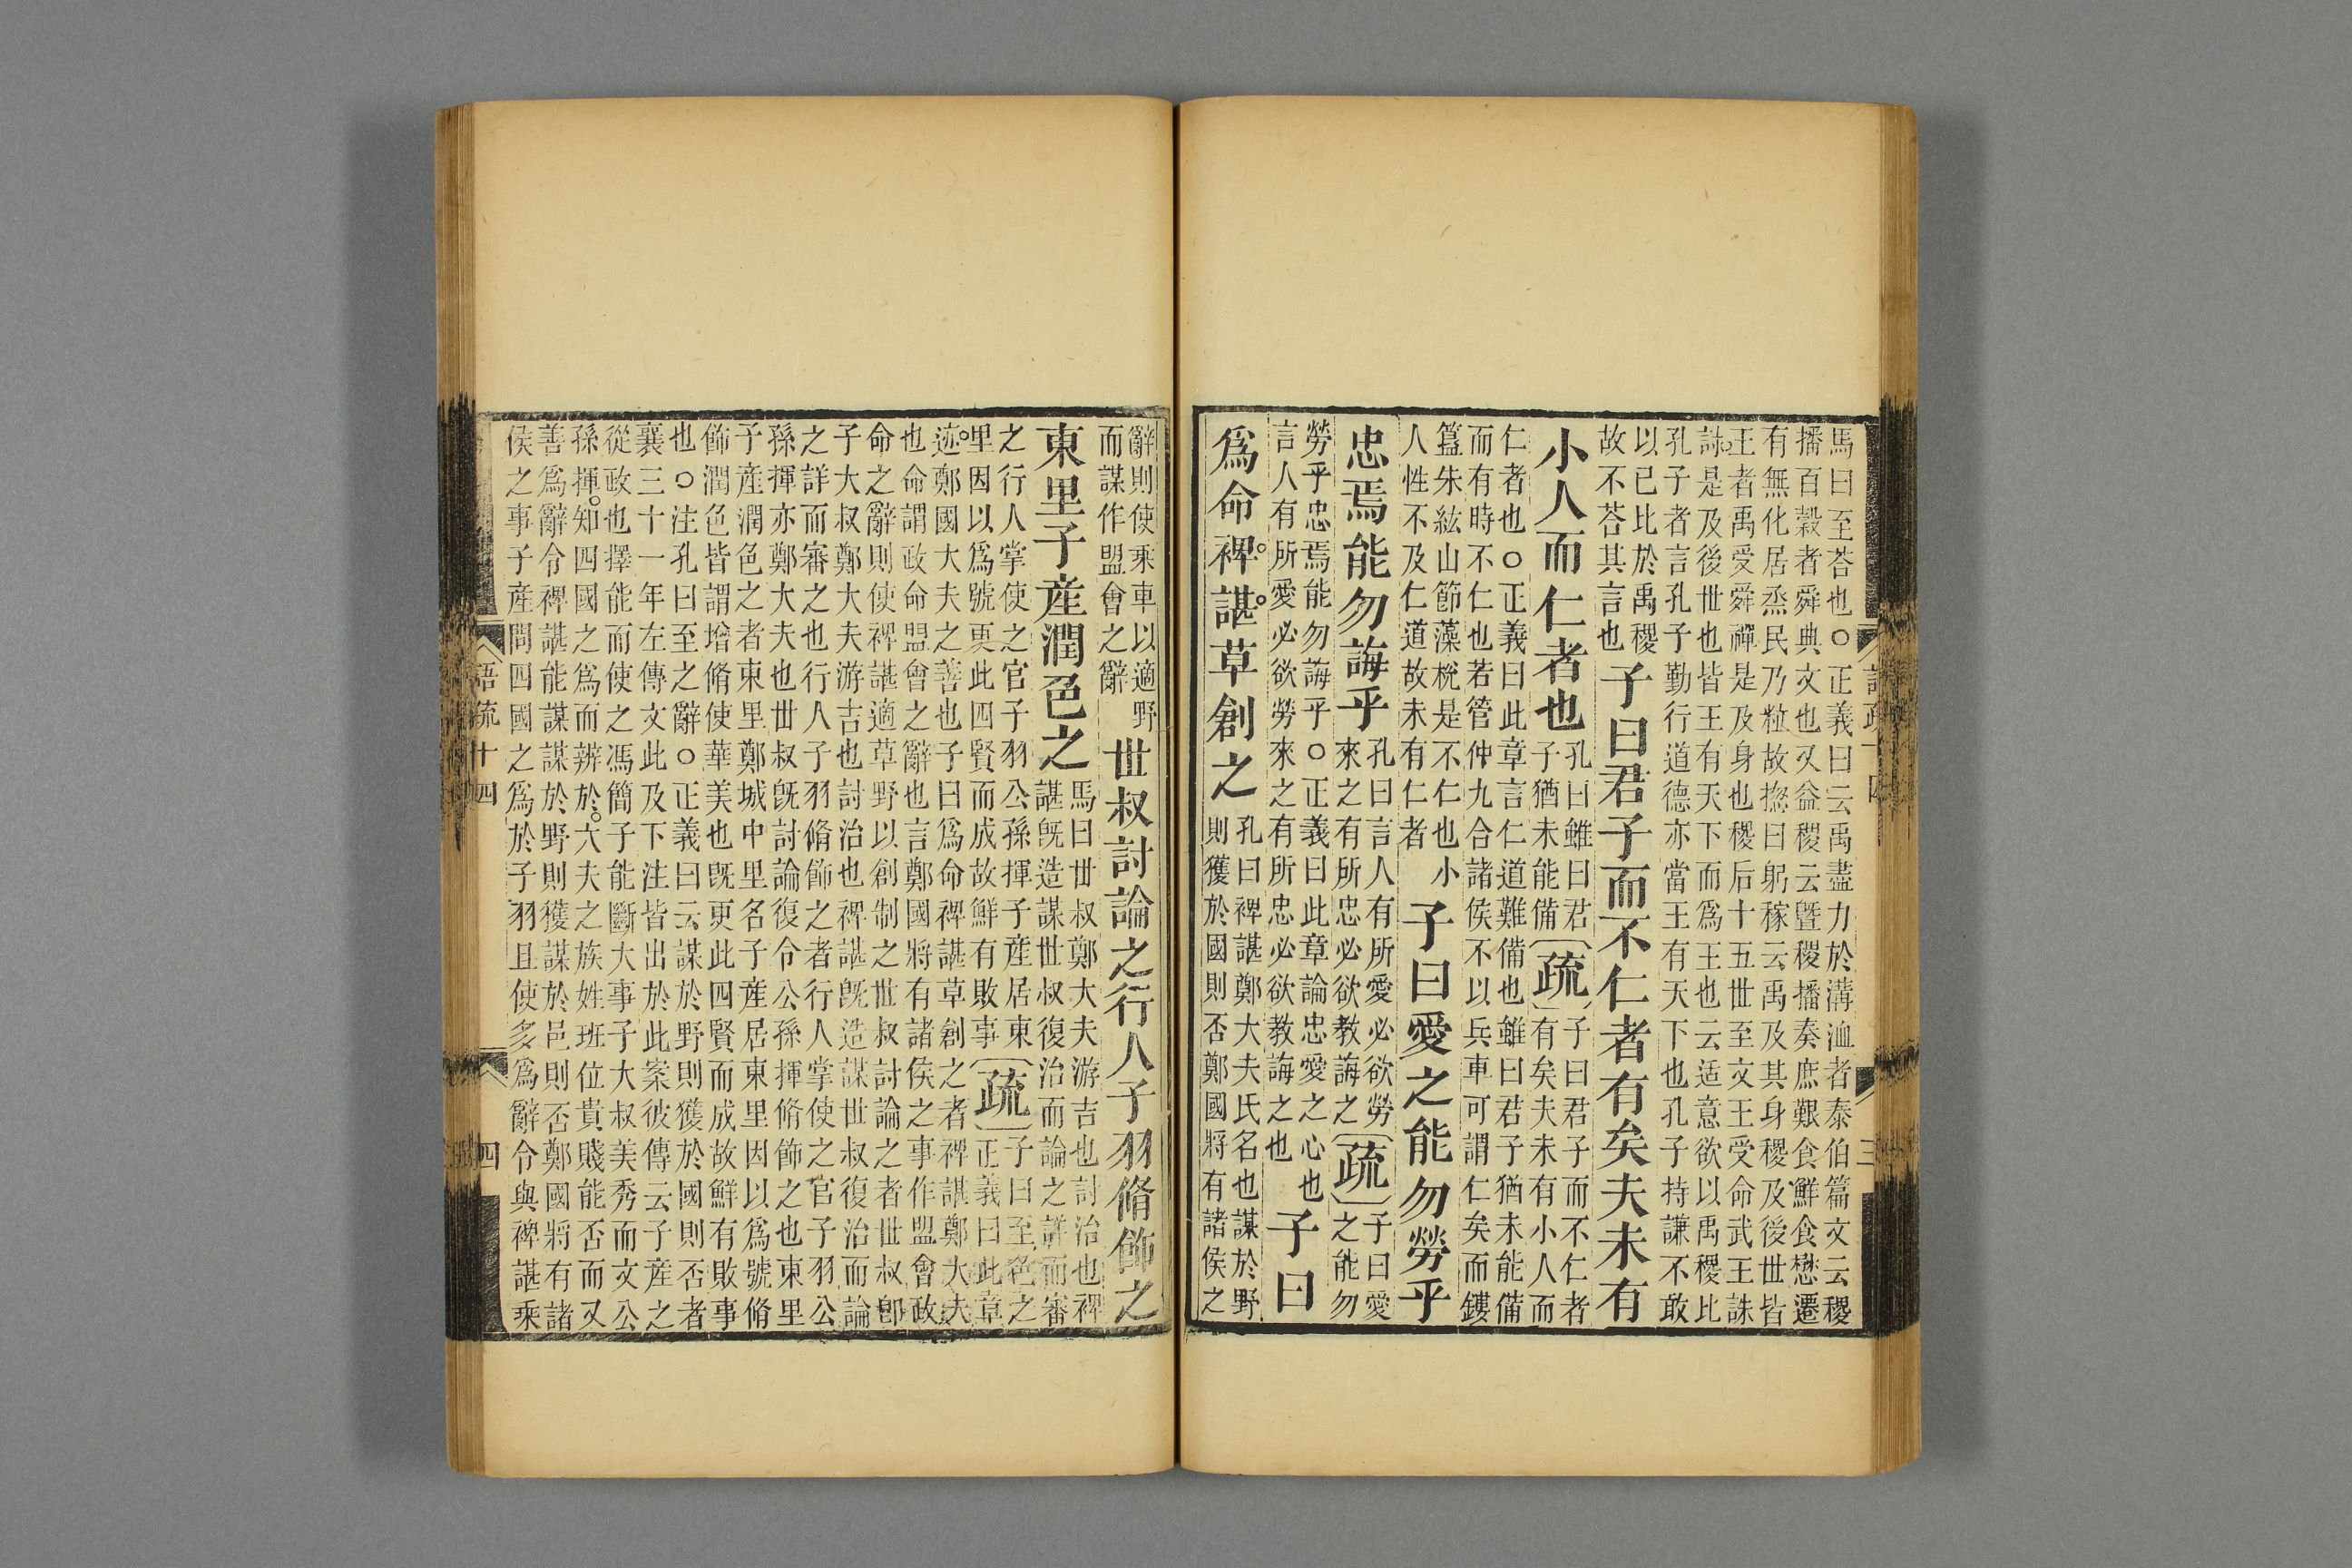 馬曰至荅也○正義曰云禹盡力於溝洫者泰伯篇文云稷
播百穀者舜典文也又益稷云曁稷播奏庶艱食鮮食懋遷
有無化居烝民乃粒故揔曰躬稼云禹及其身稷及後世皆
王者禹受舜禪是及身也稷后十五世至文王受命武王誅
是及後世也皆王有天下而爲王也云适意欲以禹稷比
孔子者言孔子勤行道德亦當王有天下也孔子持謙不敢
以已比於禹稷
故不荅其言也
子曰君子而不仁者有矣夫未有
小人而仁者也
孔曰雖曰君
子猶未能備
疏
子曰君子而不仁者
有矣夫未有小人而
仁者也○正義曰此章言仁道難備也雖曰君子猶未能備
而有時不仁也若管仲九合諸侯不以兵車可謂仁矣而鏤
簋朱紘山節藻梲是不仁也小
人性不及仁道故未有仁者
子曰愛之能勿勞乎
忠焉能勿誨乎
孔曰言人有所愛必欲勞
來之有所忠必欲教誨之
疏
子曰愛
之能勿
勞乎忠焉能勿誨乎○正義曰此章論忠愛之心也
言人有所愛必欲勞來之有所忠必欲教誨之也
子曰
爲命裨諶草創之
孔曰裨諶鄭大夫氏名也謀於野
則獲於國則否鄭國將有諸侯之
辭則使乘車以適野
而謀作盟會之辭
世叔討論之行人子羽脩飾之
東里子產潤色之
馬曰世叔鄭大夫游吉也討治也裨
諶旣造謀世叔復治而論之詳而審
之行人掌使之官子羽公孫揮子產居東
里因以爲號更此四賢而成故鮮有敗事
疏
子曰至色之
正義曰此章
迹鄭國大夫之善也子曰爲命裨諶草創之者裨諶鄭大夫
也命謂政命盟會之辭也言鄭國將有諸侯之事作盟會政
命之辭則使裨諶適草野以創制之世叔討論之者世叔卽
子大叔鄭大夫游吉也討治也裨諶旣造謀世叔復治而論
之詳而審之也行人子羽脩飾之者行人掌使之官子羽公
孫揮亦鄭大夫也世叔旣討論復令公孫揮脩飾之也東里
子產潤色之者東里鄭城中里名子產居東里因以爲號脩
飾潤色皆謂增脩使華美也旣更此四賢而成故鮮有敗事
也○注孔曰至之辭○正義曰云謀於野則獲於國則否者
襄三十一年左傳文此及下注皆出於此案彼傳云子產之
從政也擇能而使之馮簡子能斷大事子大叔美秀而文公
孫揮知四國之爲而辨於大夫之族姓班位貴賤能否而又
善爲辭令裨諶能謀謀於野則獲謀於邑則否鄭國將有諸
侯之事子產問四國之爲於子羽且使多爲辭令與裨諶乘
語疏十四
四